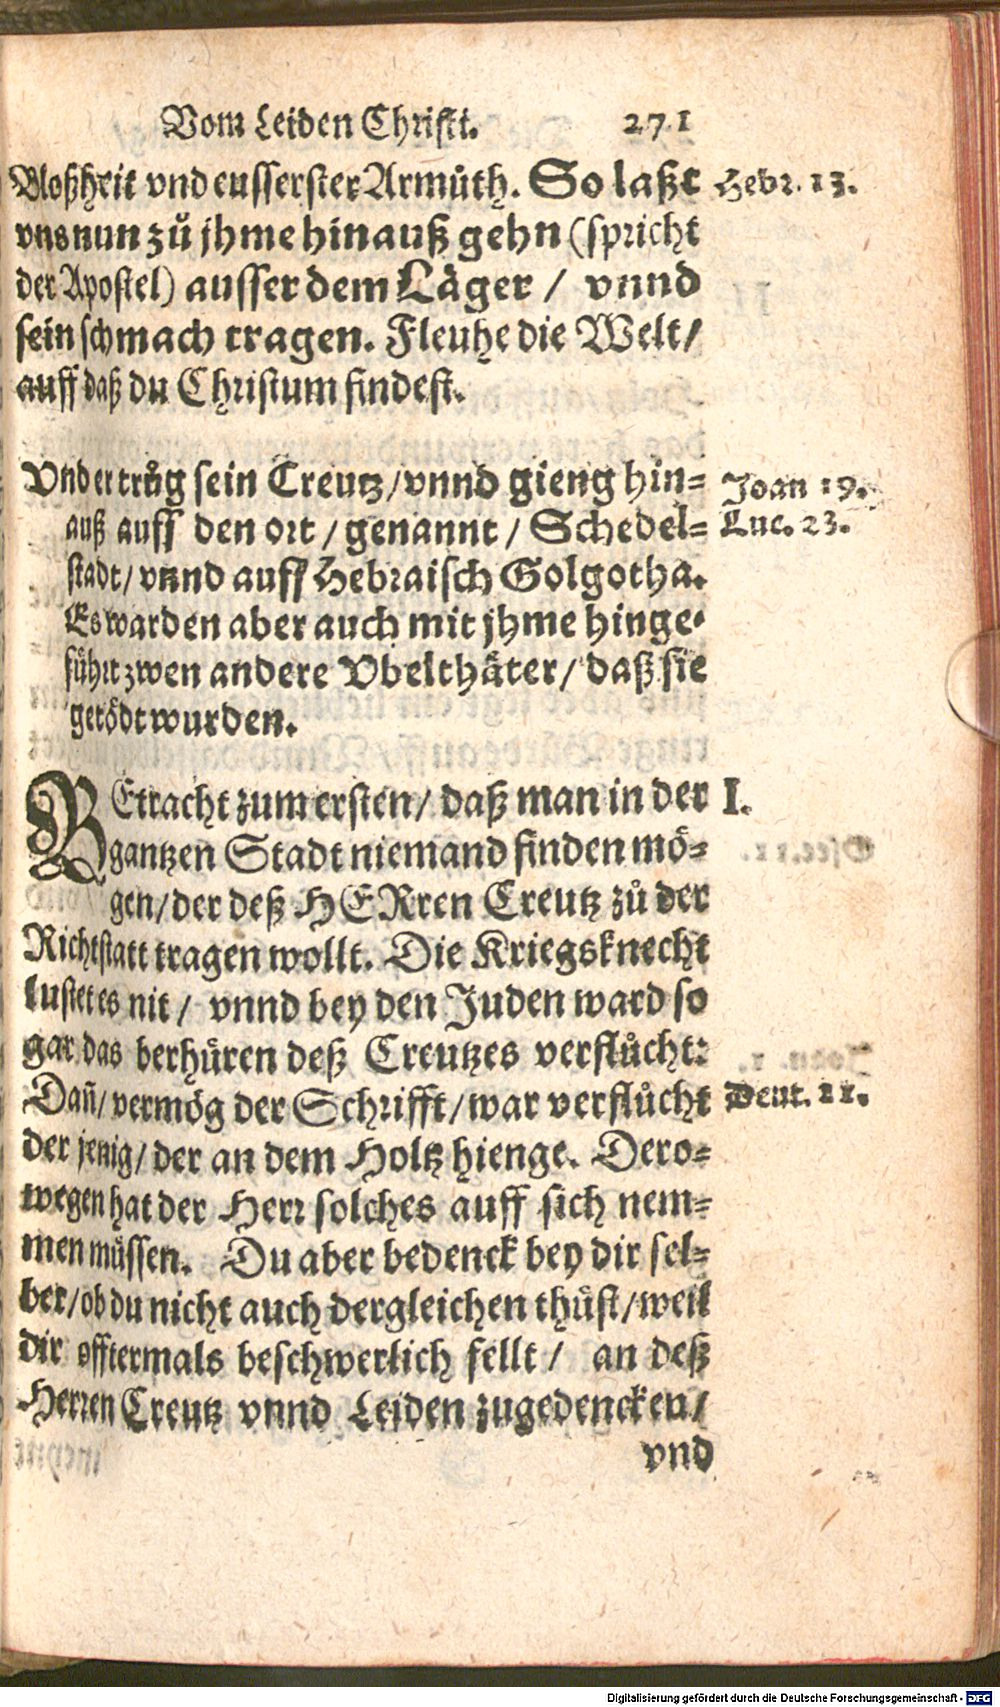 Vom Leiden Christi. 271
Bloßheit vnd eusserster Armůth. So laßt Hebr. 13.
vns nun zů jhme hinauß gehn (spricht
der Apostel) ausser dem Läger / vnnd
sein schmach tragen. Fleuhe die Welt/
auff daß du Christum findest.
Vnd er trůg sein Creutz/ vnnd gieng hin= Joan 19.
auß auff den ort / genannt / Schedel= Luc. 23.
stadt/ vnnd auff Hebraisch Golgotha.
Es warden aber auch mit jhme hinge=
führt zwen andere Vbelthäter/ daß sie
getödt wurden.
BEtracht zum ersten/ daß man in der I.
gantzen Stadt niemand finden mö=
gen/ der deß HERren Creutz zů der
Richtstatt tragen wollt. Die Kriegsknecht
lustet es nit / vnnd bey den Juden ward so
gar das berhüren deß Creutzes verflůcht:
Dañ/ vermög der Schrifft/ war verflůcht Deut. 21.
der jenig/ der an dem Holtz hienge. Dero=
wegen hat der Herr solches auff sich nem=
men müssen. Du aber bedenck bey dir sel=
ber/ ob du nicht auch dergleichen thůst/ weil
dir offtermals beschwerlich fellt / an deß
Herren Creutz vnnd Leiden zugedencken/
vnd
Digitalisierung gefördert durch die Deutsche Forschungsgemeinschaft - DFG